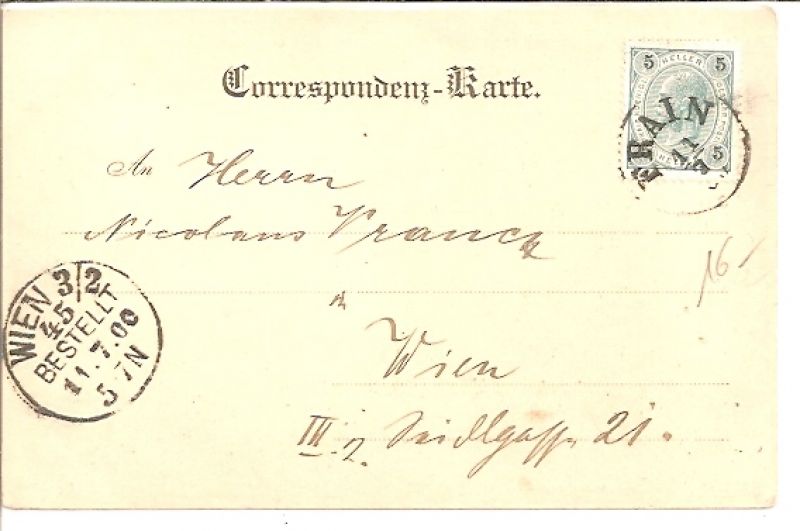 Correspondenz-Karte.
5 HELLER 5
FRAIN
5
An Herrn
Nicolaus
Wien
III. 2. Seidlgasse 21.
16
WIEN 3/2
45
BESTELLT
11.7.00
5-7N